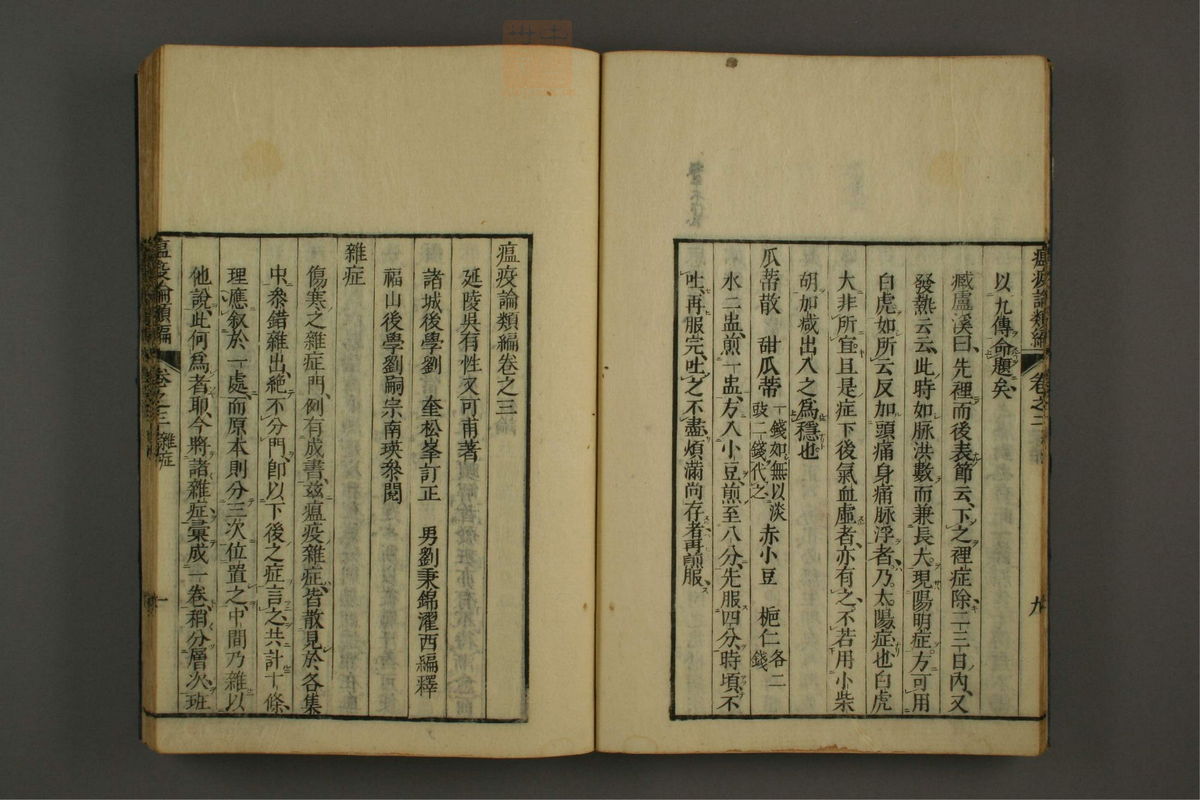 瘟疫論類編　卷之二
九
以九傳命題矣
臧盧溪曰先裡而後表節云下之裡症除二三日內又
發熱云云此時如脉洪數而兼長大現陽明症方可用
白虎如所云反加頭痛身痛脉浮者乃太陽症也白虎
大非所宜且是症下後氣血虛者亦有之不若用小柴
胡加减出入之為穩也
瓜蒂散　甜瓜蒂一錢如無以淡豉二錢代之　赤小豆　梔仁各二錢
水二盅煎一盅方入小豆煎至八分先服四分時頃不
吐再服完吐之不盡煩滿尚存者再煎服
瘟疫論類編卷之三
延陵吳有性又可甫著
諸城後學劉　奎松峯訂正　男劉秉錦濯西編釋
福山後學劉嗣宗南瑛叅閱
雜症
傷寒之雜症門例有成書茲瘟疫雜症皆散見於各集
中叅錯雜出絶不分門即以下後之症言之共計十條
理應叙於一處而原本則分三次位置之中間乃雜以
他說此何為者耶今將諸雜症彙成一卷稍分層次班
瘟疫論類編　卷之三　雜症
一